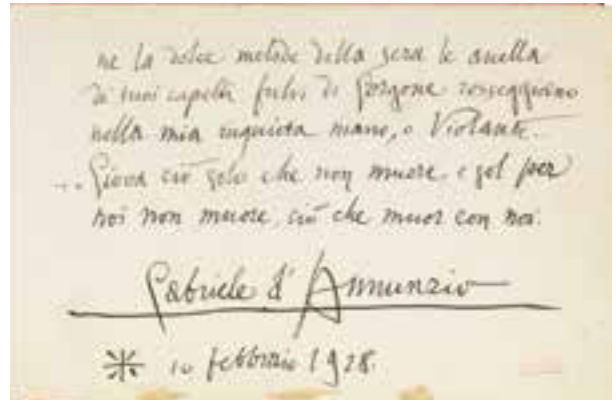 ne la dolce metode della sera le anella
de' tuoi capelli fulvi di Gorgone rosseggiano
nella mia inquieta mano, o Violante.
... Giova ciò solo che non muore, e sol per
noi non muore, ciò che muor con noi.
Gabriele d'Annunzio
* 10 febbraio 1928.